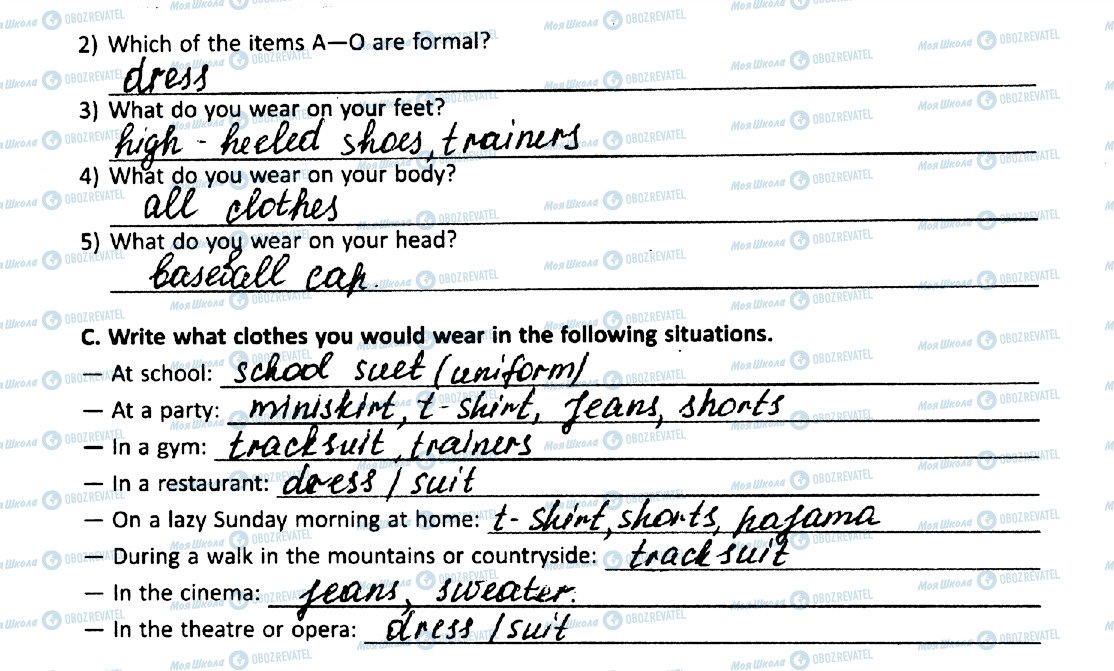 2) Which of the items A—O are formal?
dress
3) What do you wear on your feet?
high - heeled shoes, trainers
4) What do you wear on your body?
all clothes
5) What do you wear on your head?
baseball cap.
C. Write what clothes you would wear in the following situations.
— At school: school suet (uniform)
— At a party: miniskirt, t - shirt, jeans, shorts
— In a gym: tracksuit, trainers
— In a restaurant: dress / suit
— On a lazy Sunday morning at home: t - shirt, shorts, pajama
— During a walk in the mountains or countryside: tracksuit
— In the cinema: jeans, sweater.
— In the theatre or opera: dress / suit
Моя Школа OBOZREVATEL